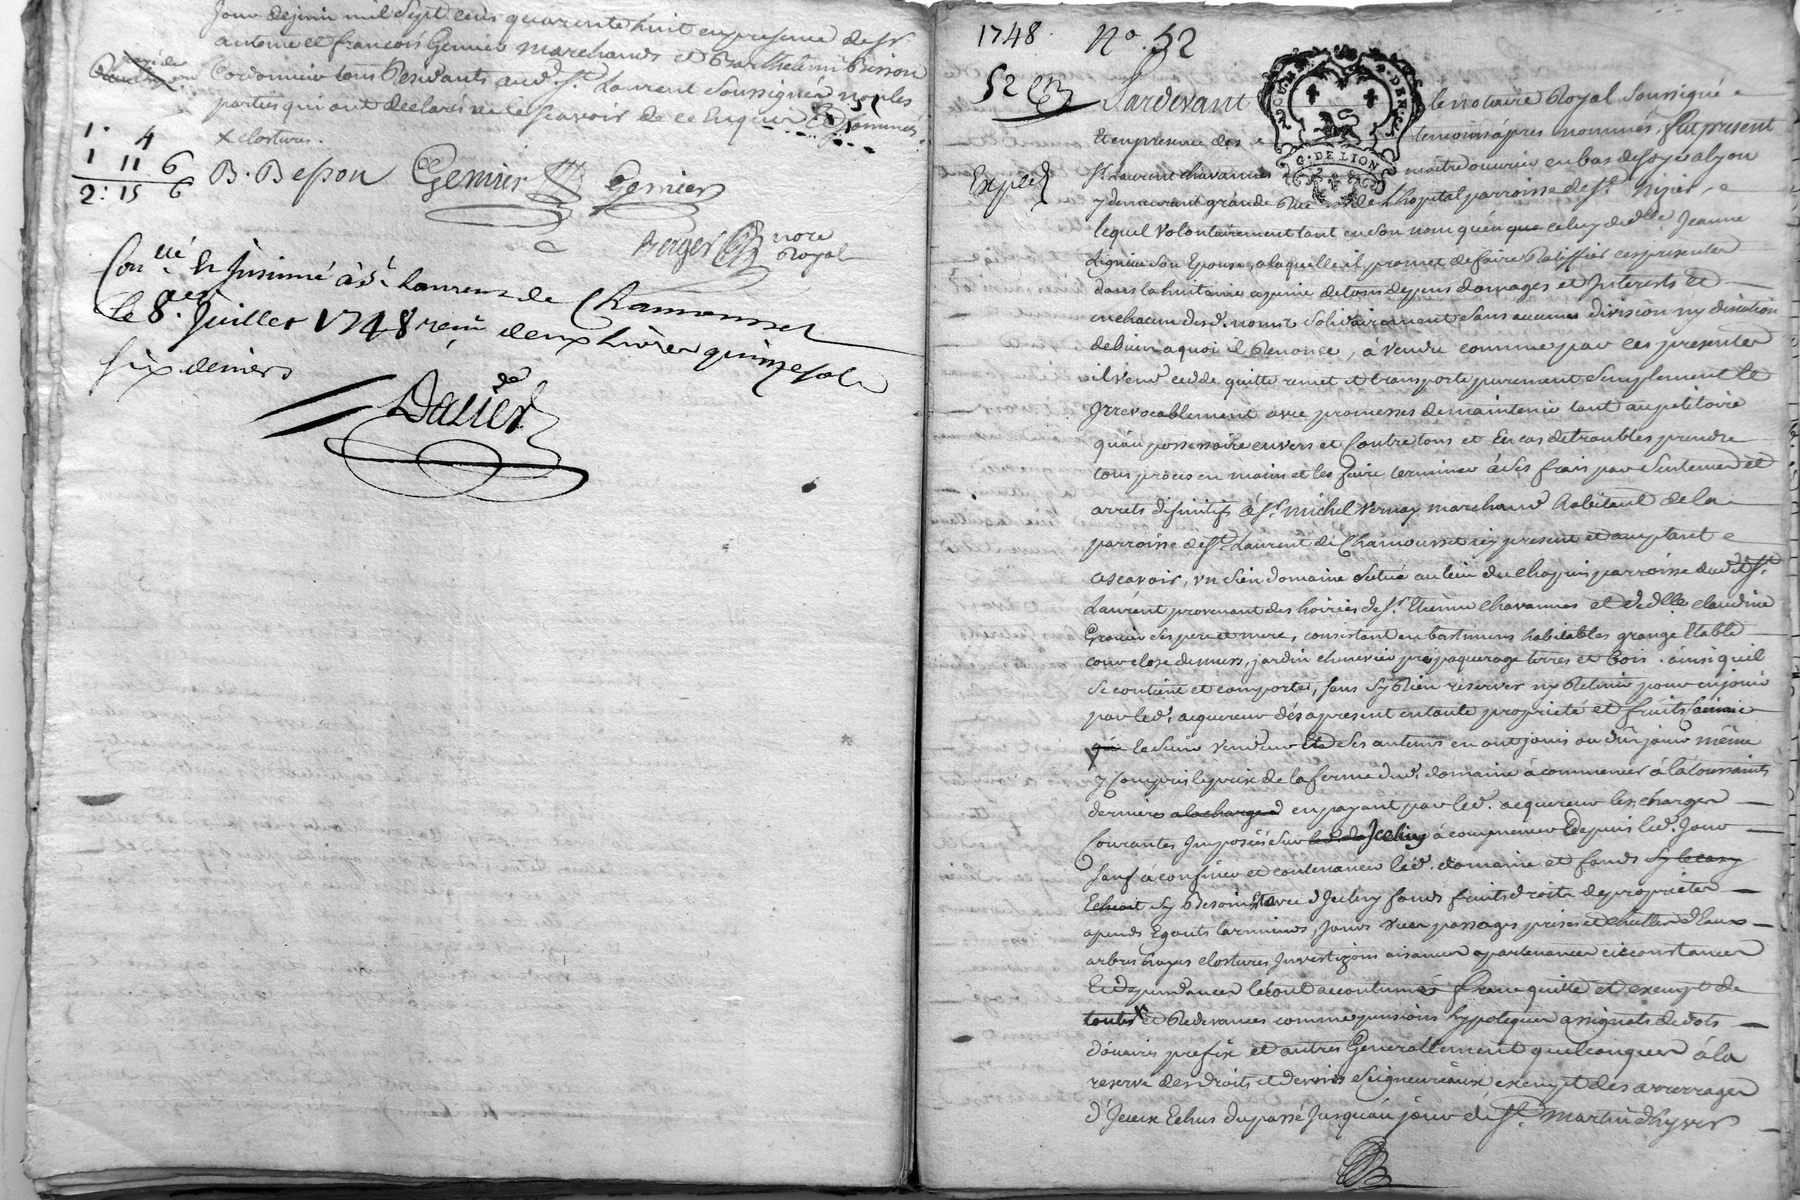 jour de juin mil sept cens quarente huit en presence de sr
antoine et françois Gernier marchands et Barthelemi Brisson
Cordonnier tous Residants aud. St. Laurent soussignés non les
parties qui ont declaré ne le scavoir de ce Enquis & sommés
x closture.
1. 4
1 11 6
2: 15 6
B. Besson Gernier Gernier
Berger nore Royal
Con.lé et Insinué à St Laurens de Chamousset
le 8. Juillet 1748 reçu deux livres quinze sols
six deniers
Dauier
1748. No. 52
52 Pardevant le notaire Royal soussigné
et en presence des temoins apres nommés, fut present
Expié
sr. Laurent chavannes maitre ouvrier en bas de soye a lyon
y demeurant grande Rue de l'hopital parroisse de st. Nizier
lequel volontairement tant en son nom qu'en que celuy de dlle. Jeanne
son Epouse, a laquelle il promet de faire Ratiffier ces presentes
dans la huitaine a peine de tous depens domages et Interests et
en chacun desd. noms solidairement sans aucune division ny discution
de biens a quoi il Renonce, à vendu comme par ces presentes
il vend cede quitte remet et transporte purement simplement et
Irrevocablement avec promesses de maintenir tant au petitoire
qu'au possessoire envers et Contre tous et En cas de troubles prendre
tous proces en mains et les faire terminer à ses frais par sentences et
arrets definitifs à sr. michel Vernay marchand habitant de la
parroisse de St. Laurent de Chamousset icy present et acceptant
ascavoir, un sien domaine situé au lieu du chopin parroisse dud. St.
Laurent provenant des hoiries de sr. Etienne chavannes et de dlle claudine
Gronier ses pere et mere, consistant en bastimens habitables grange Etable
cour close de murs, jardin chenevier prés paquerage terres et bois. ainsi qu'il
se contient et comporte, sans sy Rien reserver ny Retenir pour en jouir
par led. acquereur dés apresent en toute proprieté et fruits
que led. sieur vendeur et ses auteurs en ont joui ou dû jouir même
y Compris le prix de la ferme dud. domaine à commencer à la toussaints
derniere a la charge d en payant par led. acquereur les charges
Courantes Imposées sur Icelui à commencer depuis led. jour
sauf à confiner et contenancer led. domaine et fonds sy le cas y
Echoit sy Besoin Est avec d'Iceluy fonds fruits droits de proprietés
apends Egouts larmiers, jours vues passages prises et chuttes d'Eaux
arbres hayes clostures Investizons aisances apartenances circonstances
Et dependances le tout accoutumés franc quitte et exempt de
toutes et Redevances comme pensions hypoteques assignats de dots
doüaire prefix et autres Generallement quelconques à la
reserve des droits et devoirs seigneuriaux exempt des arrerages
d'Iceux Echus du passé Jusqu'au jour de St. martin d'hyver